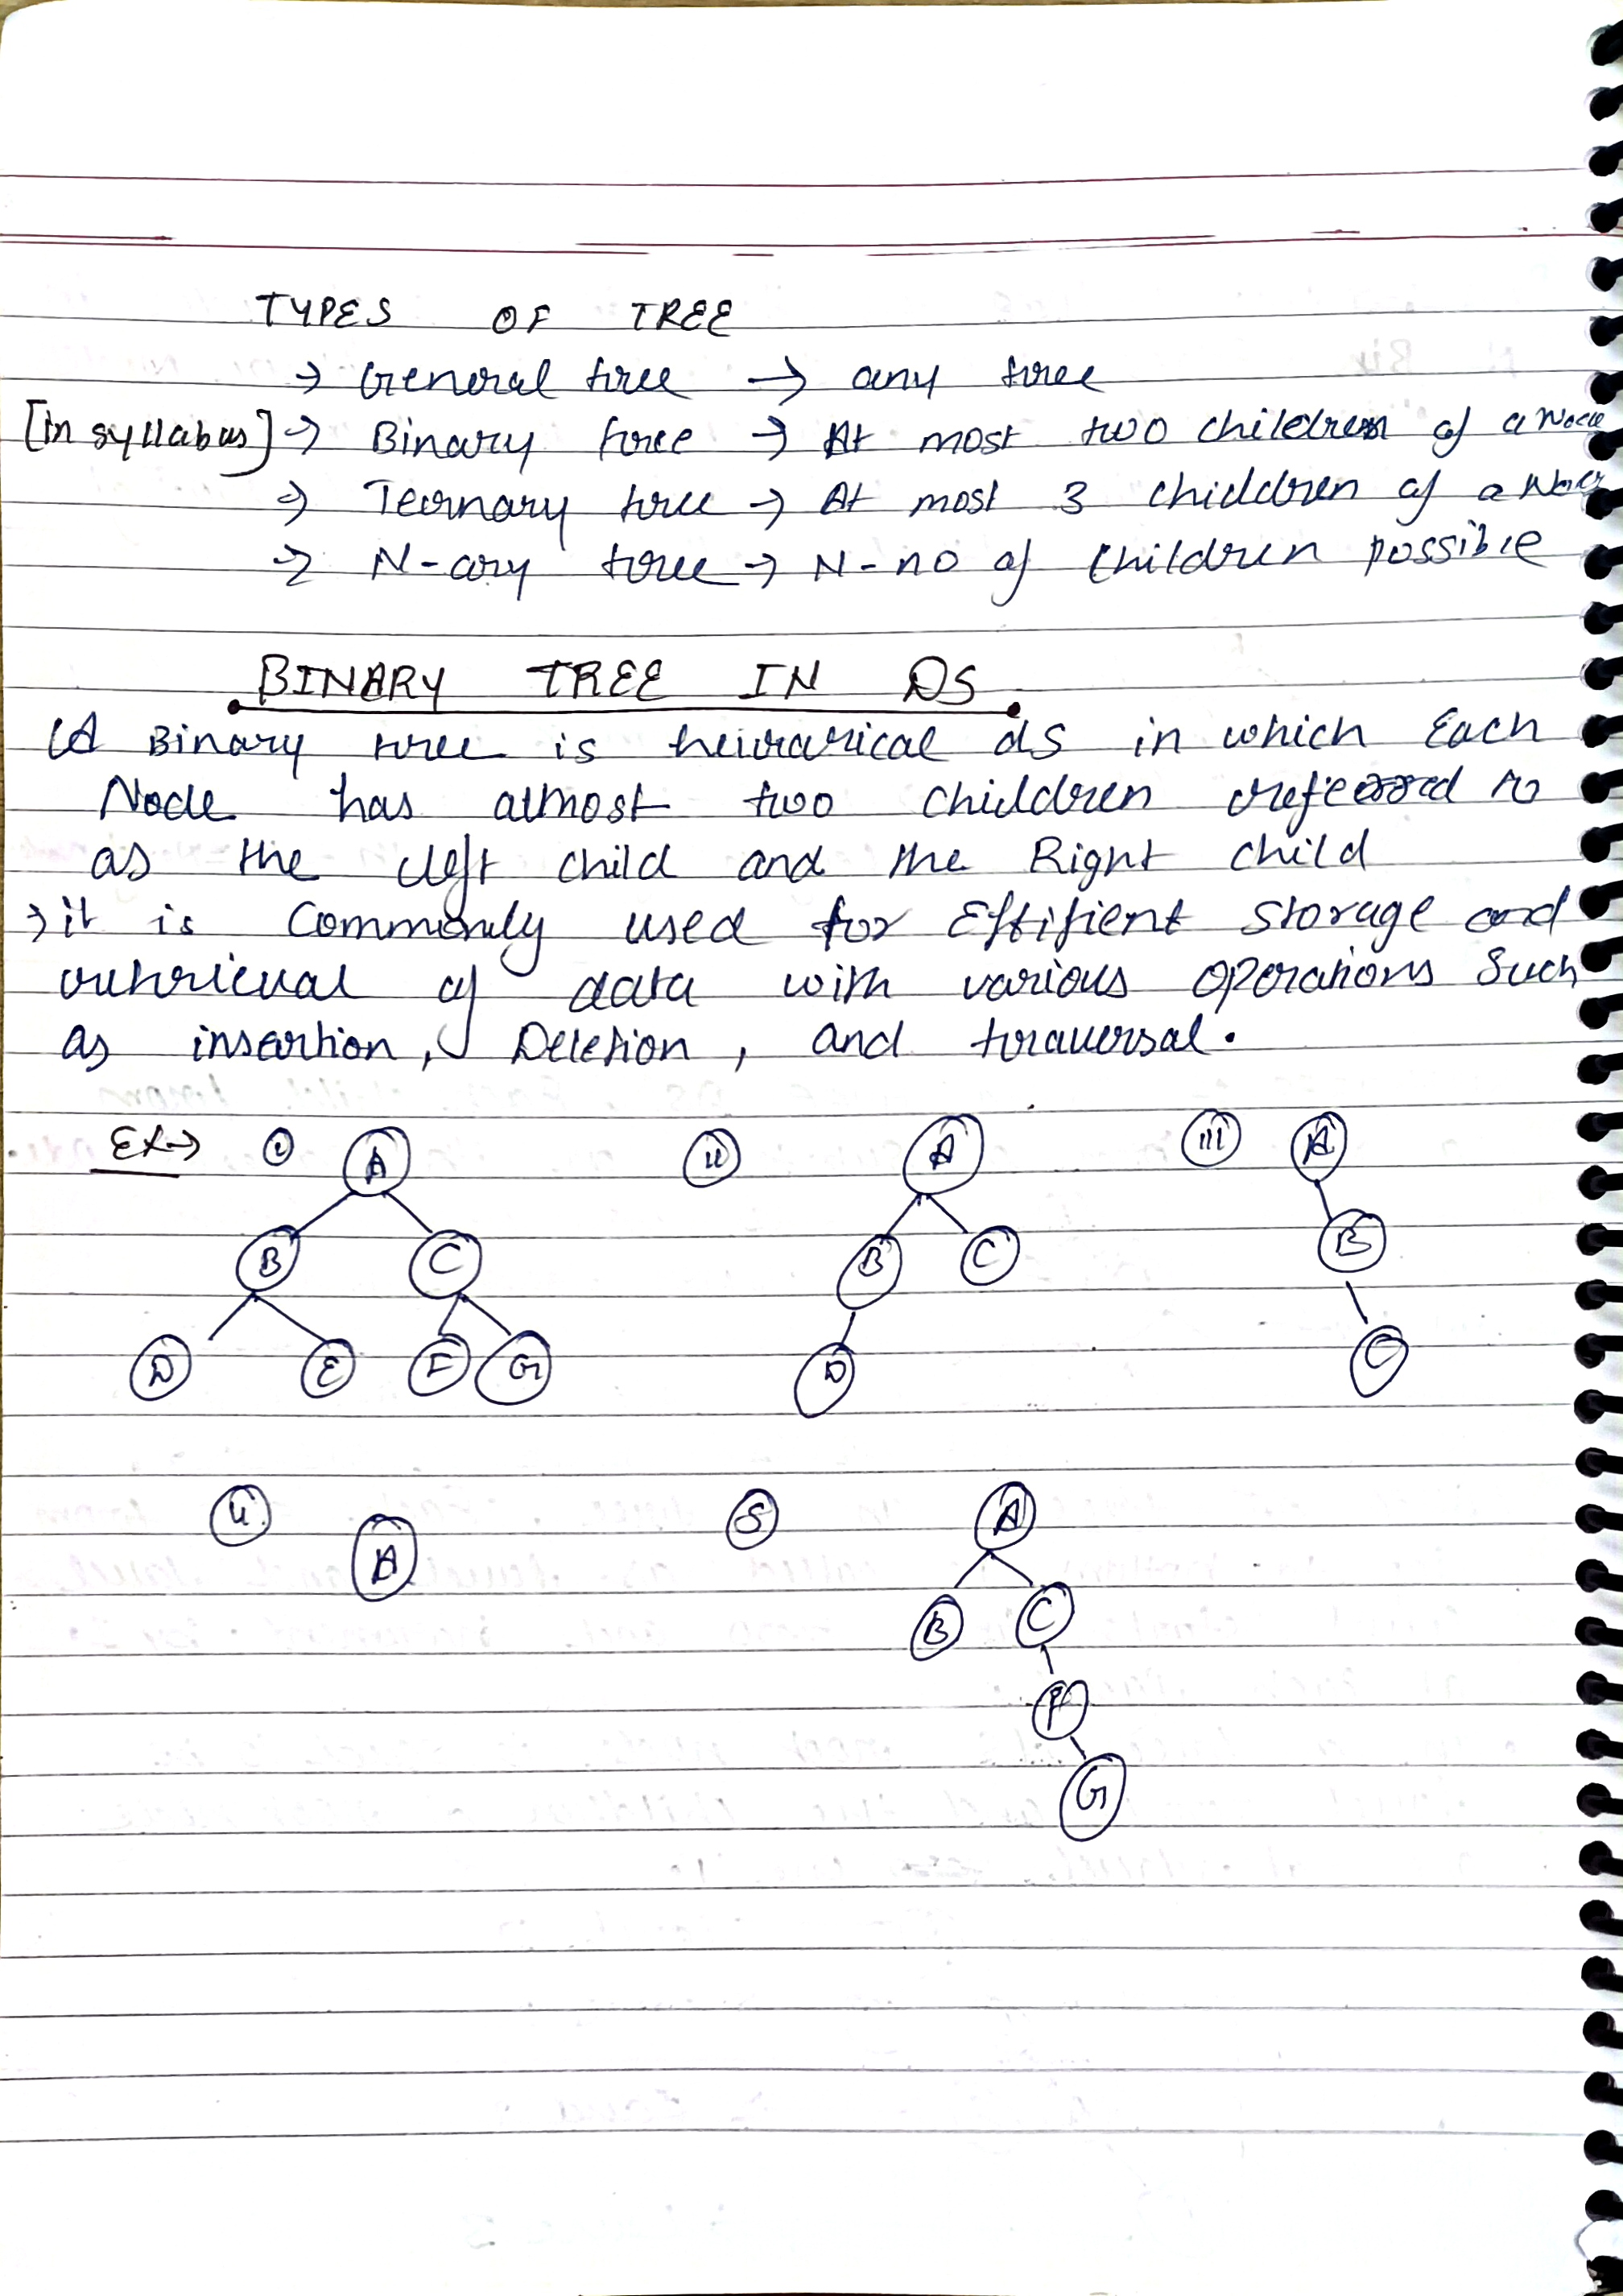 TYPES OF TREE
→ General tree → any tree
[in syllabus] → Binary tree → At most two children of a Node
→ Ternary tree → At most 3 children of a Node
→ N-ary tree → N-no of children possible
BINARY TREE IN DS
A Binary tree is heirarical ds in which Each
Node has atmost two children referred to
as the left child and the Right child
→ it is Commonly used for Effifient storage and
retrieval of data with various operations Such
as insertion, Deletion, and traversal.
Ex→ i A ii A iii A
B C B C B
D E F G D C
4 A 5 A
B C
F
G